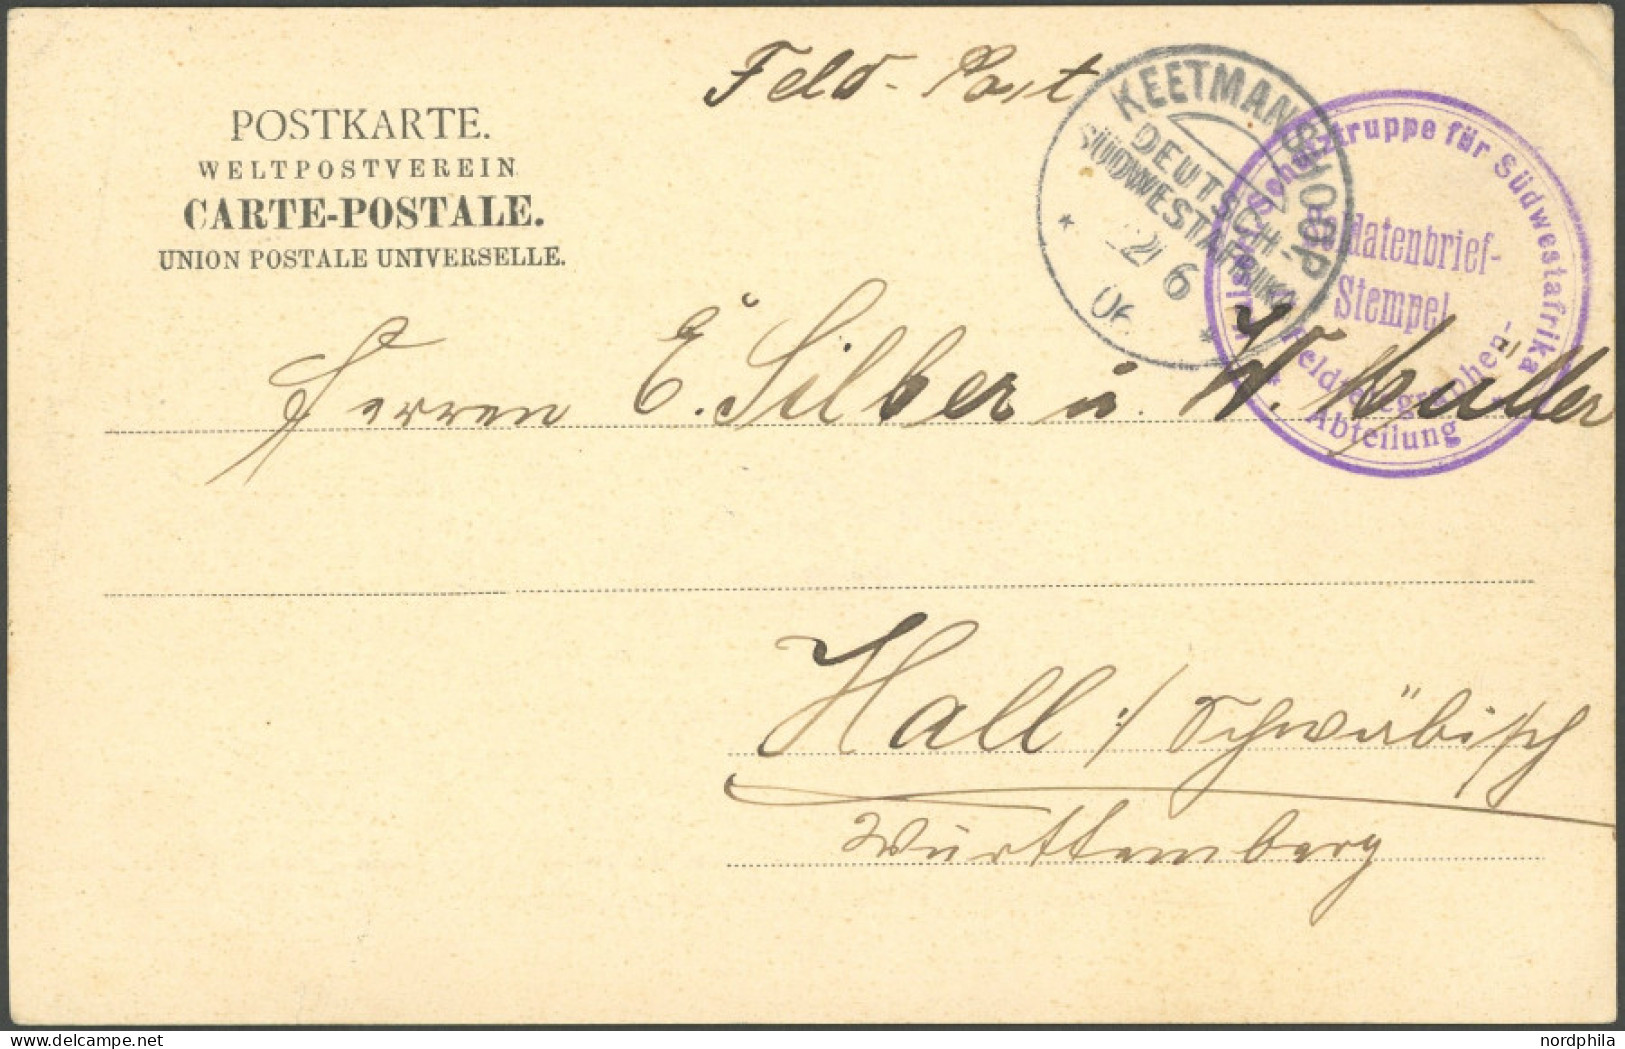 Feld-Post
POSTKARTE.
WELTPOSTVEREIN
CARTE-POSTALE.
UNION POSTALE UNIVERSELLE.
KEETMANSHOOP
DEUTSCH-
SÜDWESTAFRIKA
6
06
Schutztruppe für Südwestafrika
Soldatenbrief-
Stempel
Feldtelegraphen-
Abteilung
Herren E. Silber u. W. Müller
Hall :/ Schwäbisch
Württemberg
nordphila